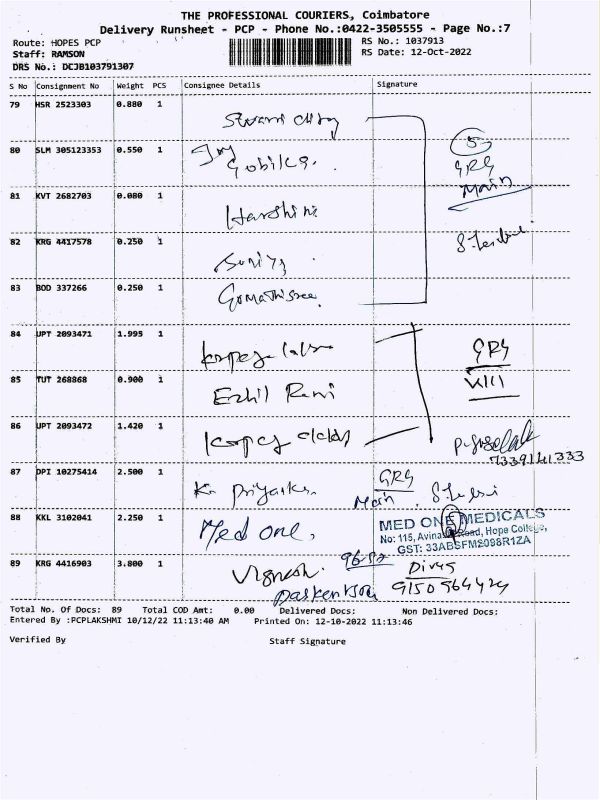 THE PROFESSIONAL COURIERS, Coimbatore
Delivery Runsheet - PCP - Phone No.:0422-3505555 - Page No.:7
Route: HOPES PCP
RS No.: 1037913
Staff: RAMSON
RS Date: 12-Oct-2022
DRS No.: DCJB103791307
S No Consignment No Weight PCS Consignee Details Signature
79 HSR 2523303 0.880 1
80 SLM 305123353 0.550 1 Gobika.
GRG
Main
81 KVT 2682703 0.080 1 Harshini
82 KRG 4417578 0.250 1
83 BOD 337266 0.250 1 Gomathisree
84 UPT 2093471 1.995 1
GRG
VIII
85 TUT 268868 0.900 1 Ezhil Rani
86 UPT 2093472 1.420 1
7339141333
87 DPI 10275414 2.500 1 K. Priyanka. GRG
Main
88 KKL 3102041 2.250 1 Med one,
MED ONE MEDICALS
No: 115, Avinashi Road, Hope College,
GST: 33ABSFM2098R1ZA
89 KRG 4416903 3.800 1 Vignesh.
Total No. Of Docs: 89 Total COD Amt: 0.00 Delivered Docs: Non Delivered Docs:
Entered By :PCPLAKSHMI 10/12/22 11:13:40 AM Printed On: 12-10-2022 11:13:46
Verified By Staff Signature